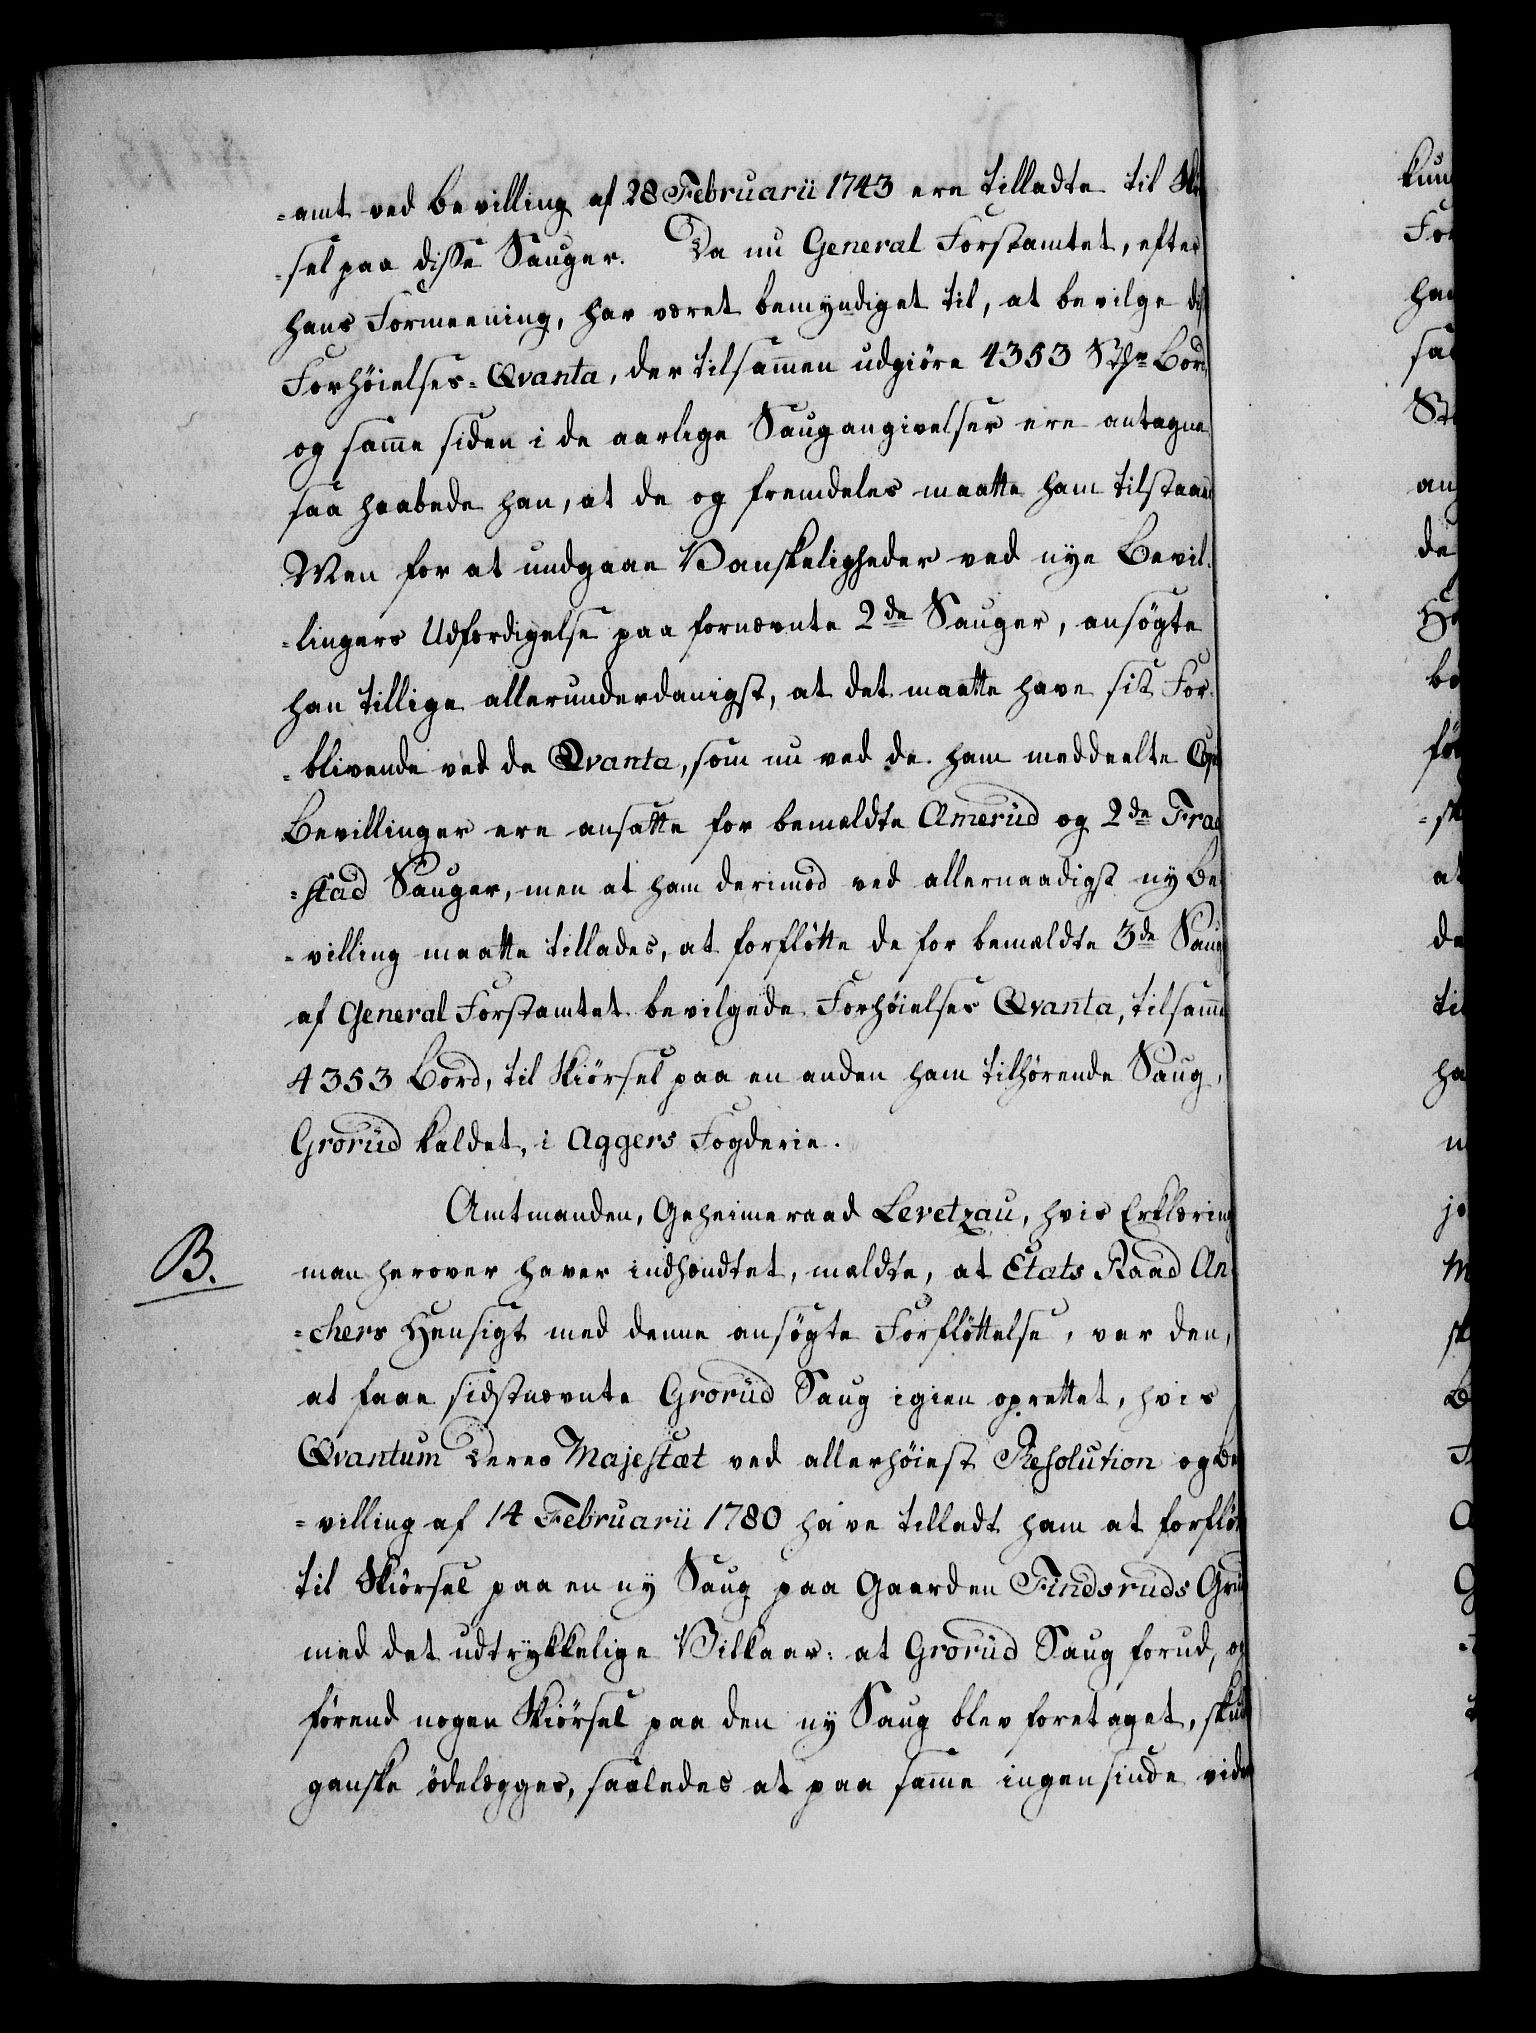 -amt ved bevilling af 28 Februarii 1743 ere tilladte til Skiø
-sel paa disse Sauger. Da nu General Forstamtet, efter
hans Formeening, har været bemyndiget til, at bevilge diss
Forhøielses-Qvanta, der tilsammen udgiöre 4353 Stkr Bord
og samme siden i de aarlige Saugangivelser ere antagne
saa haabede han, at de og fremdeles maatte ham tilstaaes
Men for at undgaae Vanskeligheder ved nye Bevil-
-lingers Udfærdigelse paa fornævnte 2de Sauger, ansögte
han tillige allerunderdanigst, at det maatte have sit For-
-blivende ved de Qvanta, som nu ved de ham meddeelte
Bevillinger ere ansatte for bemældte Amerud og 2de Frag
-stad Sauger, men at ham derimod ved allernaadigst ny Be
-villing maatte tillades, at forflötte de for bemældte 3de Saug
af General Forstamtet bevilgede Forhöielses Qvanta, tilsamme
4353 Bord, til Skiörsel paa en anden ham tilhørende Saug,
Grorud kaldet, i Aggers Fogderie.
Amtmanden, Geheimeraad Levetzau, hvis Erklæring
B.
man herover haver indhændtet, mældte, at Etats Raad An
-chers Hensigt med denne ansögte Forflöttelse, var den,
at faae sidstnævnte Grorud Saug igien oprettet, hvis
Qvantum Deres Majestæt ved allerhöiest Resolution og Be
-villing af 14 Februarii 1780 have tilladt ham at forflöt
til Skiörsel paa en ny Saug paa Gaarden Findsruds Grun
med det udtrykkelige Vilkaar: at Grorud Saug forud, og
förend nogen Skiörsel paa den ny Saug blev foretaget, skuld
ganske ödelægges, saaledes at paa samme ingensinde vider